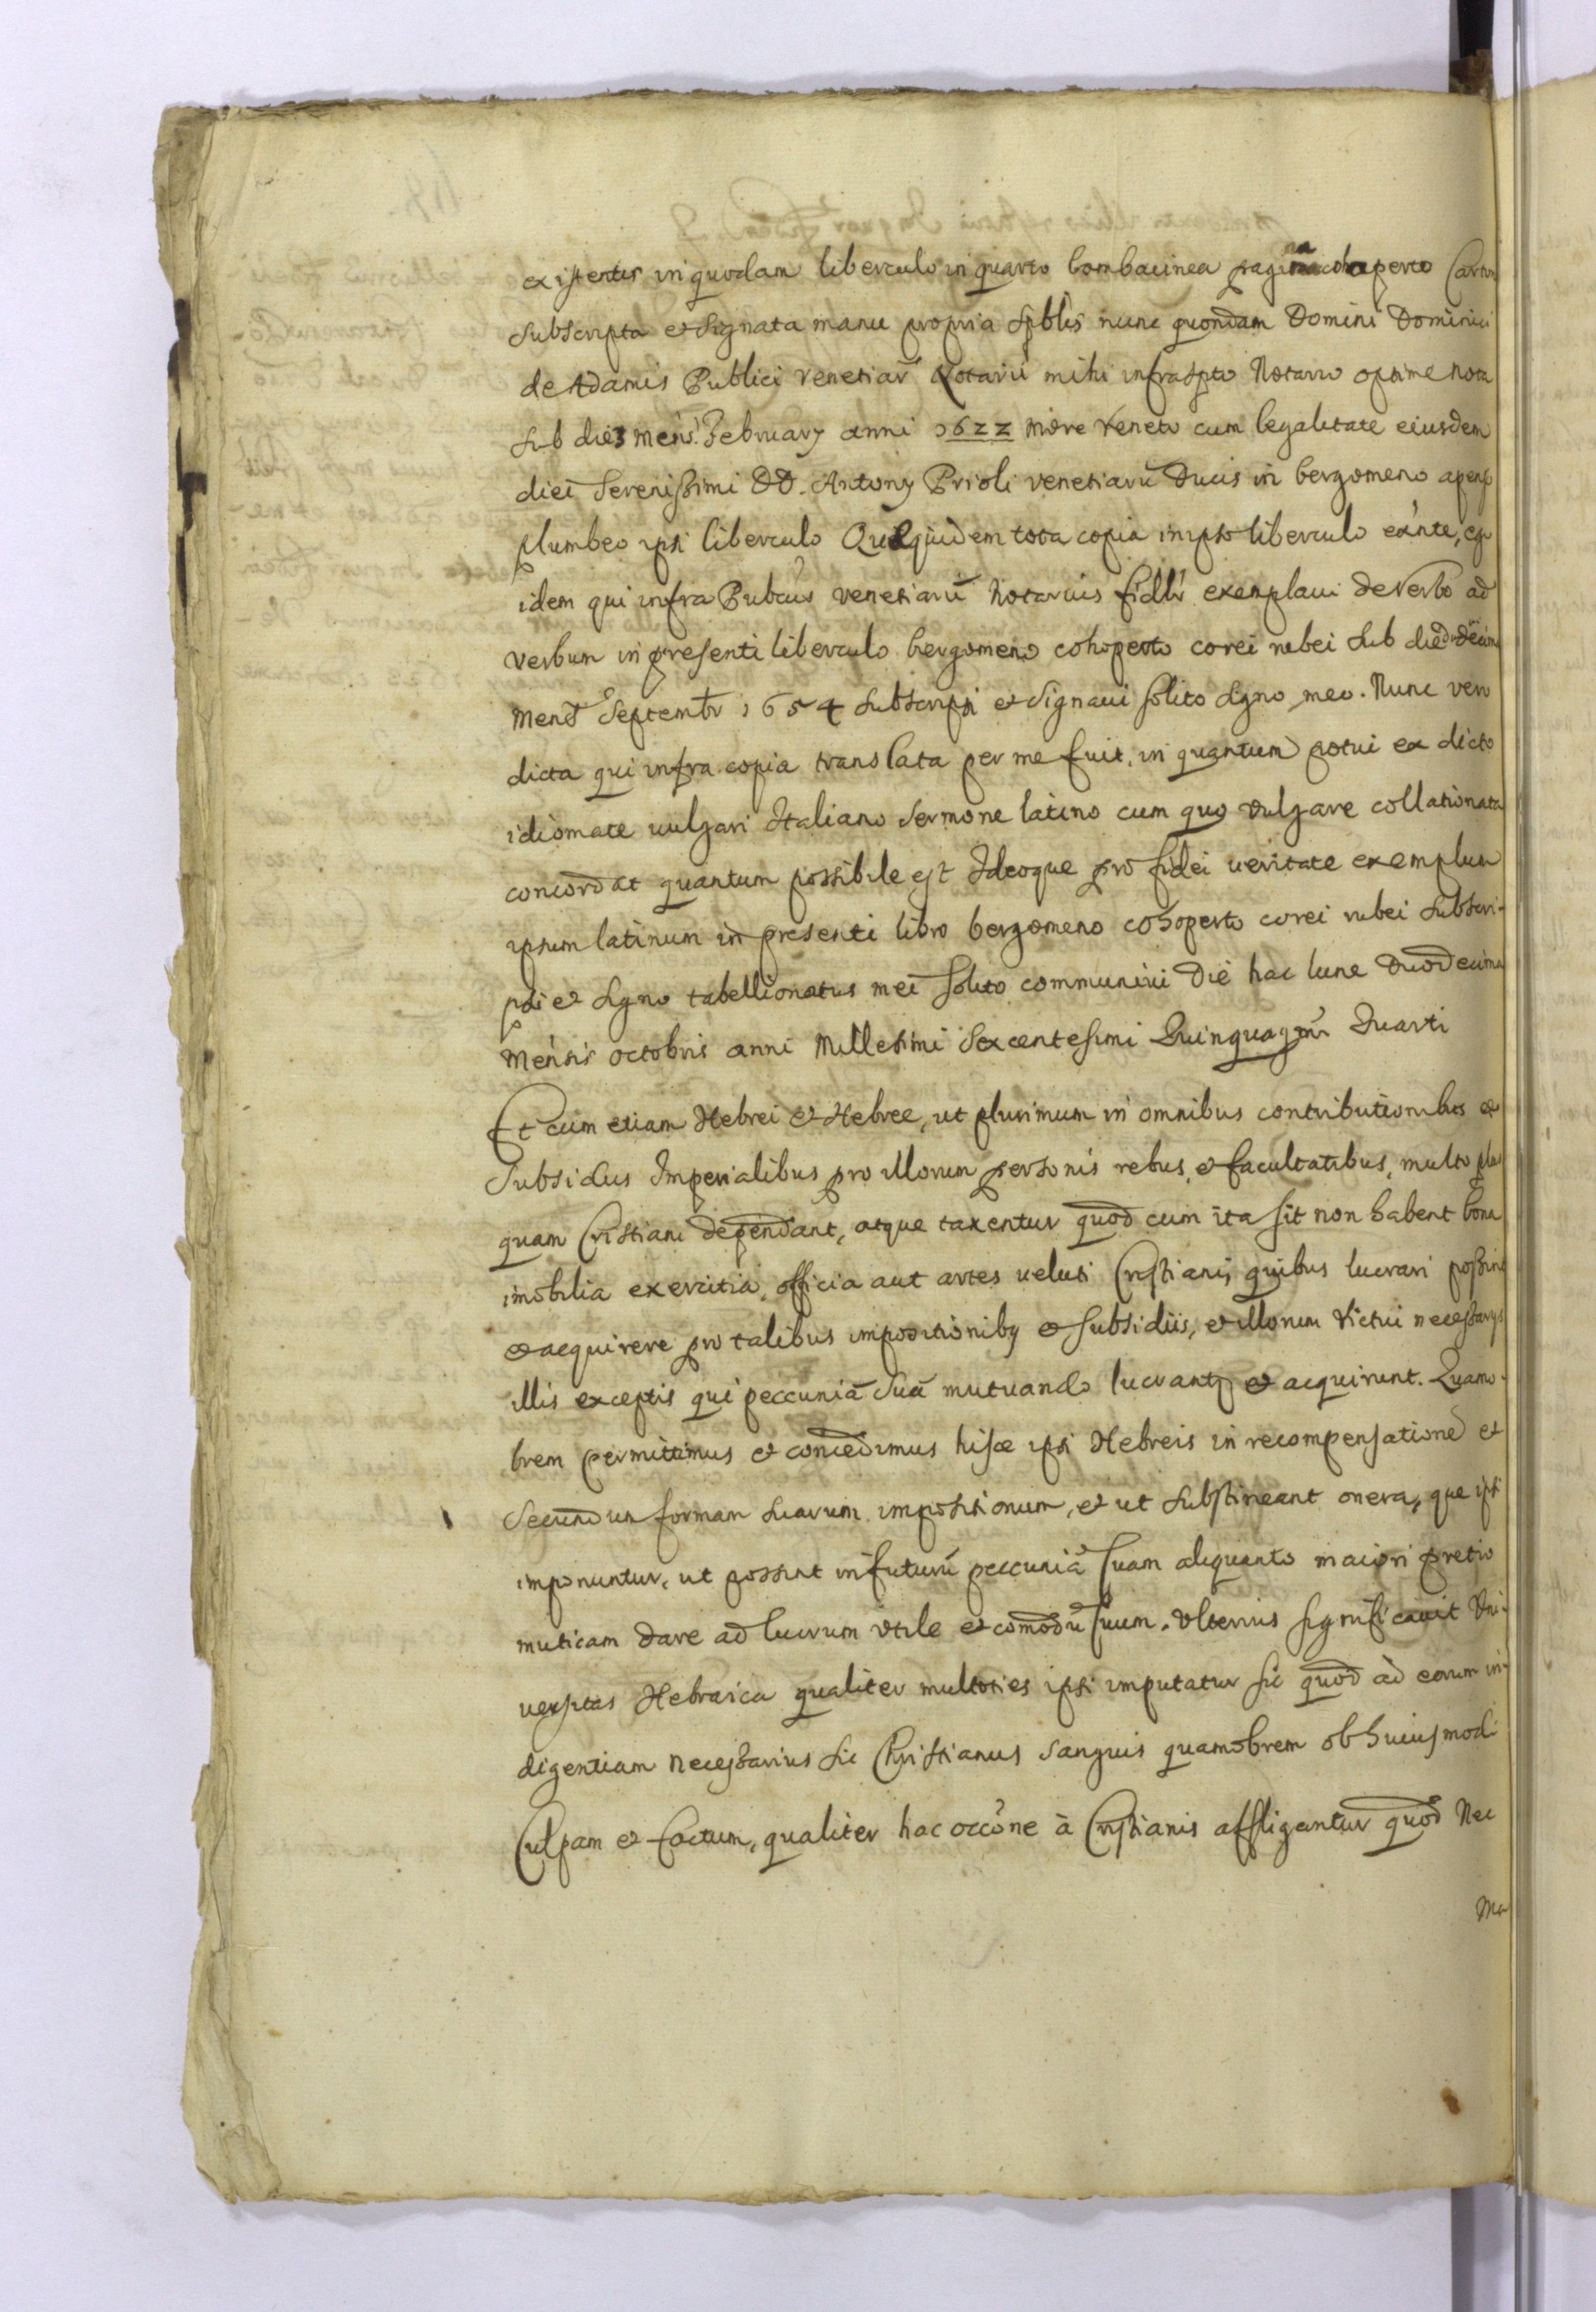 existentis in quodam liberculo in quarto bombacinea pagina cohoperto
subscripta et signata manu propria spblis nunc quondam Domini Dominici
de Adamis Publici Venetiar̄ Notarii mihi infrascpto Notario optime nota
sub die 3 mens. February anni 1622 more Veneto cum legalitate eiusdem
diei Serenissimi DD. Antony Prioli Venetiarū Ducis in bergomeno
plumbeo ipsi liberculo Quequidem tota copia in ipso liberculo exńte, ego
idem qui infra Pubcus Venetiarū Notarius fidlr exemplaui de Verbo ad
Verbum in presenti liberculo bergomeno cohoperto corei rubei sub die
mens Septembr 1654 subscripsi et signaui solito signo meo. Nunc vero
dicta qui infra copia translata per me fuit, in quantum potui ex dicto
idiomate uulgari Italiano sermone latino cum quo vulgare collationata
concordat quantum possibile est Ideoque pro fidei ueritate exemplum
ipsum latinum in presenti libro bergomeno cohoperto corei rubei subscri-
psi et signo tabellionatus mei solito communiui Die hac lune duodecima
Mensis octobris anni Millesimi Sexcentesimi Quinquagmi Quarti
Et cum etiam Hebrei et Hebree, ut plurimum in omnibus contributionibus et
Subsidus Imperialibus pro illorum personis rebus, et facultatibus, multo plus
quam Cristiani dependant, atque taxentur quod cum ita sit non habent bona
imobilia exercitia, officia aut artes ueluti Cristiani, quibus lucrari possint
et acquirere pro talibus impositionibus et subsidiis, et illorum Victui necessarys
illis exceptis qui peccuniā suā mutuando lucrantur et acquirunt. Quamo-
brem permittimus et concedimus hisce ipsi Hebreis in recompensatione et
Secundum formam suarum impositionum, et ut substineant onera, que ipsi
imponuntur, ut possint in futurū peccuniā suam aliquanto maiori pretio
muticam dare ad lucrum utile et comodū suum. Ulterius significauit Uni-
uersitas Hebraica qualiter multoties ipsi imputatur sic quod ad eorum in-
digentiam necessarius sit Christianus sanguis quamobrem ob huiusmodi
Culpam et factum, qualiter hac occōne à Cristianis affligantur quod Nec
Ma